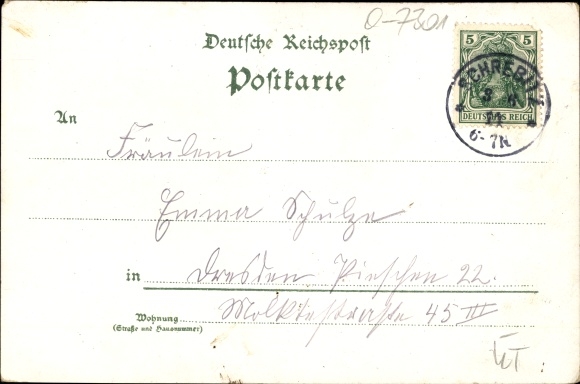 O-7301
Deutsche Reichspost
Postkarte
5 5
DEUTSCHES REICH
6-7N
An
Fräulein
Emma Schulze
in Dresden Pieschen 22.
Moltkestraße 45 III
Wohnung
(Straße und Hausnummer)